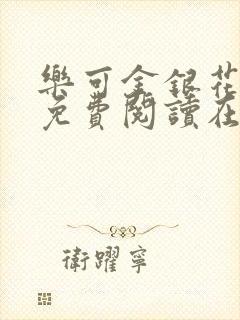 樂可金銀花
免費閱讀在
衛躍寧